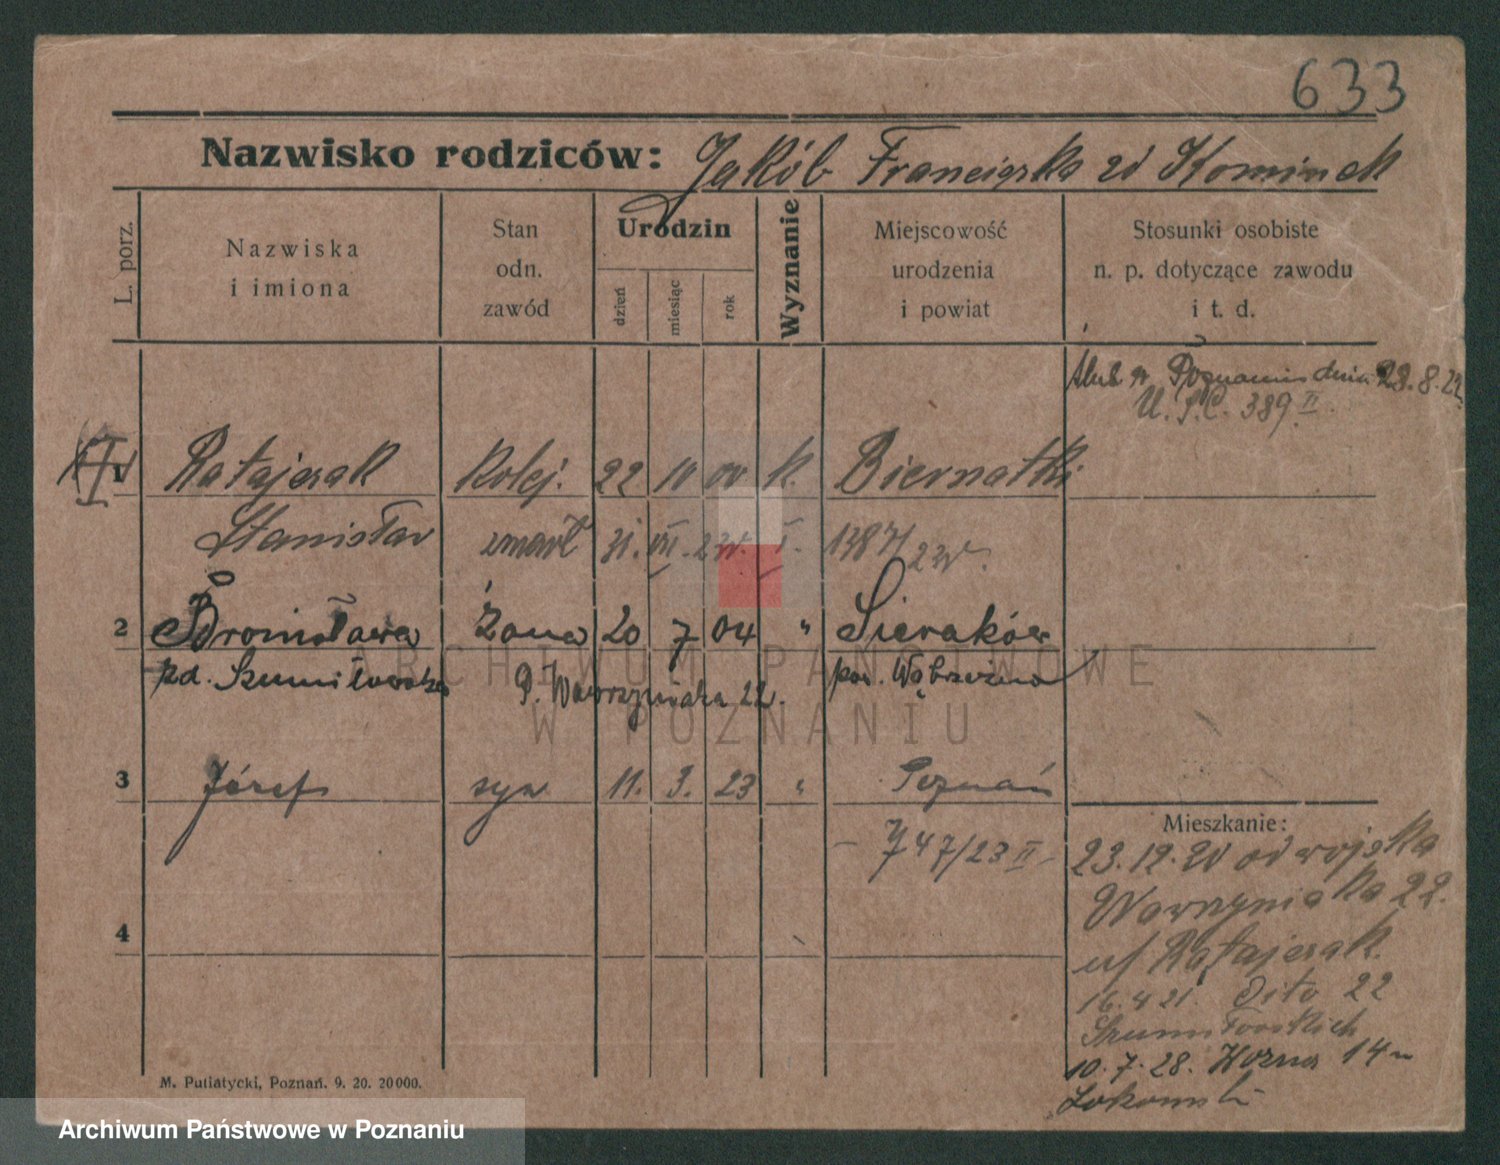 633
Nazwisko rodziców: Jakób Franciszka zd Kominek
L. porz.
Nazwiska i imiona
Stan odn. zawód
Urodzin
dzień
miesiąc
rok
Wyznanie
Miejscowość urodzenia i powiat
Stosunki osobiste n. p. dotyczące zawodu i t. d.
ślub w Poznaniu dnia 28.8.22
U.S.C. 389 II
1 Ratajczak Kolej. 22 10 00 k. Biernatki
Stanisław zmarł 31. VII. 23r. I. 1387/23r.
2 Bronisława żona 20 7 04 " Sieraków
zd. Szumiłowska P. Wawrzyniaka 22. pow. Wąbrzeźno
3 Józef syn 11. 3. 23 " Poznań
- 747/23 II -
4
Mieszkanie:
23.12.20 od wojska
Wawrzyniaka 22.
u/ Ratajczak
16.4 21. Dito 22
Szumiłowskich
10.7.28. 14
M. Putiatycki, Poznań. 9. 20. 20000.
ARCHIWUM PAŃSTWOWE
W POZNANIU
Archiwum Państwowe w Poznaniu